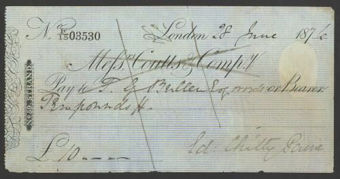 No. E/15 03530 London 28 June 187
Messrs Coutts & Compy.
Pay to T. G. Buller Esq or Bearer
Ten pounds
£10
Ed. Chitty